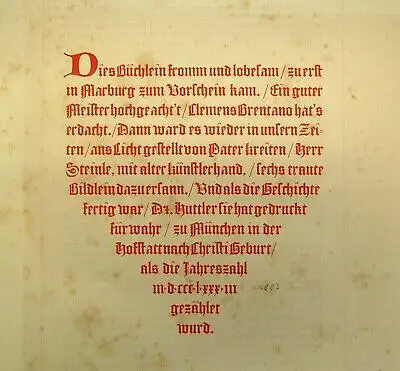 Dies Büchlein fromm und lobesam / zu erst
in Marburg zum Vorschein kam. / Ein guter
Meister hochgeacht't / Clemens Brentano hat's
erdacht. / Dann ward es wieder in unsern Zei-
ten / ans Licht gestellt von Pater Kreiten / Herr
Steinle, mit alter Künstlerhand, / sechs traute
Bildlein dazu ersann. / Und als die Geschichte
fertig war / Dr. Huttler sie hat gedruckt
fürwahr / zu München in der
Hofstatt nach Christi Geburt /
als die Jahreszahl
m·d·ccc·l·xxx·iii
gezählet
wurd.